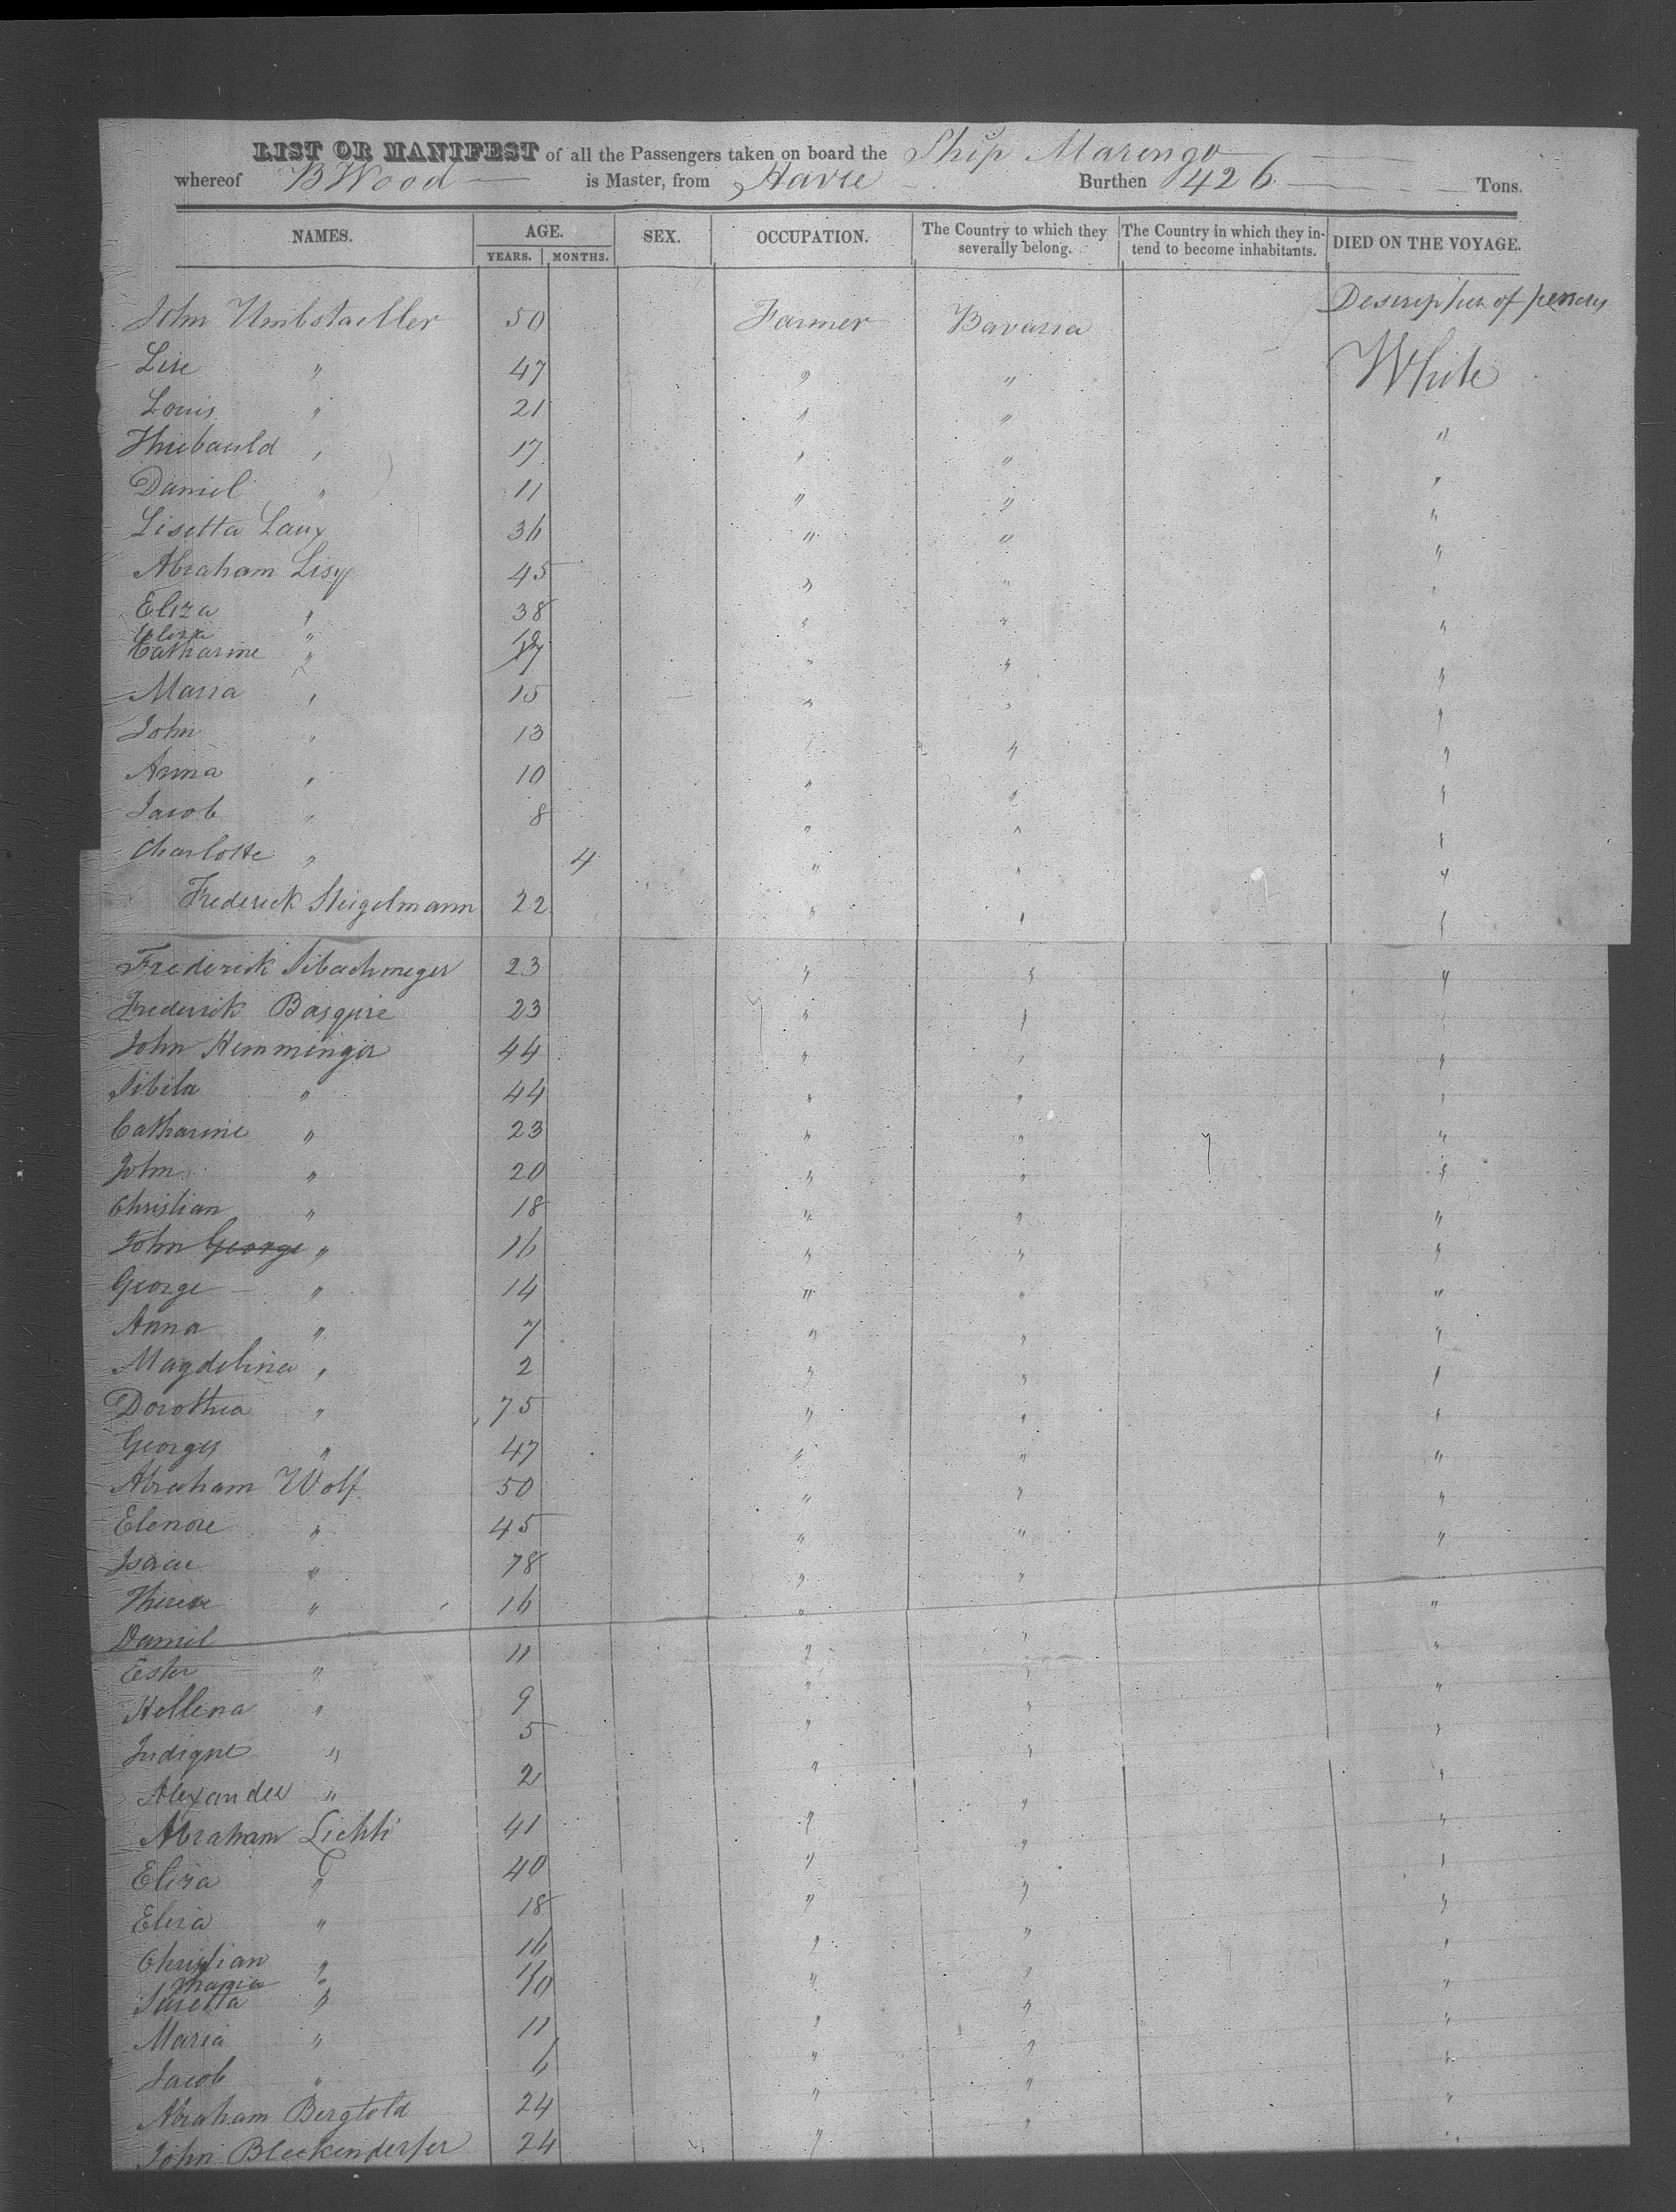 LIST OR MANIFEST of all the Passengers taken on board the Ship Marengo
whereof B Wood is Master, from Havre Burthen 426 Tons.
NAMES. AGE. YEARS. MONTHS. SEX. OCCUPATION. The Country to which they severally belong. The Country in which they intend to become inhabitants. DIED ON THE VOYAGE.
Description of
John Umbstaetter 50 Farmer Bavaria
Lise " 47 " " White
Louis " 21 " " "
Thiebauld " 17 " " "
Daniel " 11 " " "
Lisetta Laux 36 " " "
Abraham Lisy 45 " " "
Eliza " 38 " " "
Eliza "
Catharine " 17 " " "
Maria " 15 " " "
John " 13 " " "
Anna " 10 " " "
Jacob " 8 " " "
Charlotte " 4 " " "
Frederick Steigelmann 22 " " "
Frederick 23 " " "
Frederick Basquire 23 " " "
John Hemminger 44 " " "
Sibila " 44 " " "
Catharine " 23 " " "
John " 20 " " "
Christian " 18 " " "
John George " 16 " " "
George " 14 " " "
Anna " 7 " " "
Magdelina " 2 " " "
Dorothea " 75 " " "
Georges " 47 " " "
Abraham Wolf 50 " " "
Elenore " 45 " " "
Isaac " 78 " " "
Therese " 16 " "
Daniel 11 " " "
Ester " 9 " " "
Hellena " 5 " " "
" 2 " " "
Alexander "
Abraham Lichti 41 " " "
Eliza " 40 " " "
Eliza " 18 " " "
Christian " 16 " " "
Maria "
" 10 " " "
Maria " 11 " " "
Jacob " 6 " " "
Abraham Bergtold 24 " " "
John Bleckenderfer 24 " "